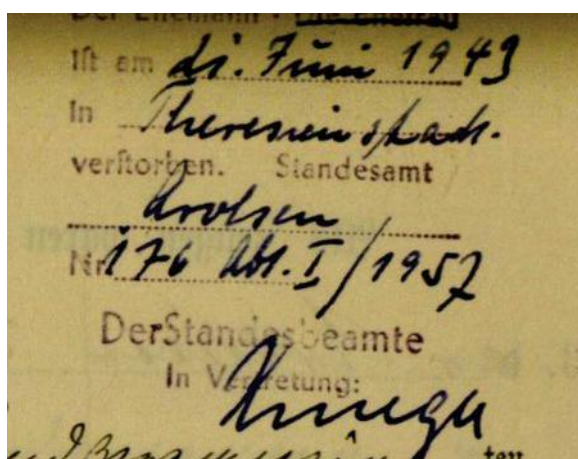 Der Ehemann - Die Ehefrau
ist am 21. Juni 1943
in Theresienstadt
verstorben. Standesamt
Arolsen
Nr. 176 Abt. I/1957
Der Standesbeamte
In Vertretung:
ten